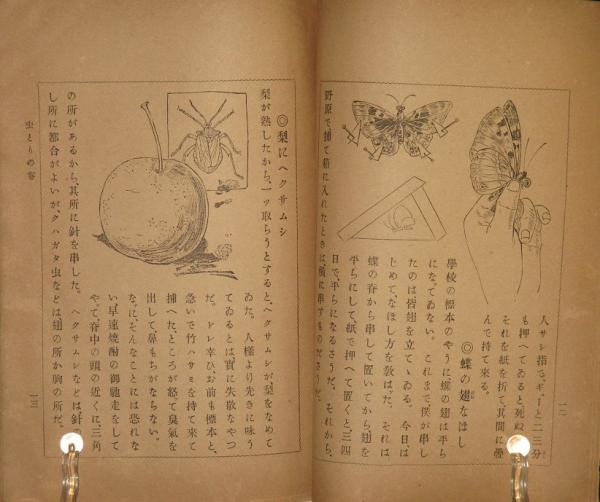 人サシ指でギューと二三分
も押へてゐると死ぬ
それを紙を折て其間に
んで持て來る。
◎蝶の翅なほし
學校の標本のやうに蝶の翅は平ら
になてゐない。これまで、僕が串し
たのは皆翅を立てゝゐる。今日は
じめて、なほし方を敎はた。それは
蝶の脊から串して置いてから、翅を
平らにして、紙で押へて置くと、三四
日で、平らになるさうだ。それから、
野原で捕て箱に入れたときは、横に串すものださうだ。
一二
◎梨にヘクサムシ
梨が熟したから、一ッ取らうとすると、ヘクサムシが、梨をなめて
ゐた。人樣より先きに味う
てゐるとは、實に失敬なやつ
だ。ドレ幸ひ、お前も標本と、
急いで竹ハサミを持て來て
捕へた、ところが怒て臭氣を
出して、鼻もちがならない。
なに、そんなことには恐れな
い、早速燒酎の御馳走をして
やて、脊中の頭の近くに、三角
の所があるから、其所に針を串した。ヘクサムシなどは、針
し所に都合がよいが、クハガタ虫などは翅の所か胸の所だ。
虫とりの卷
一三